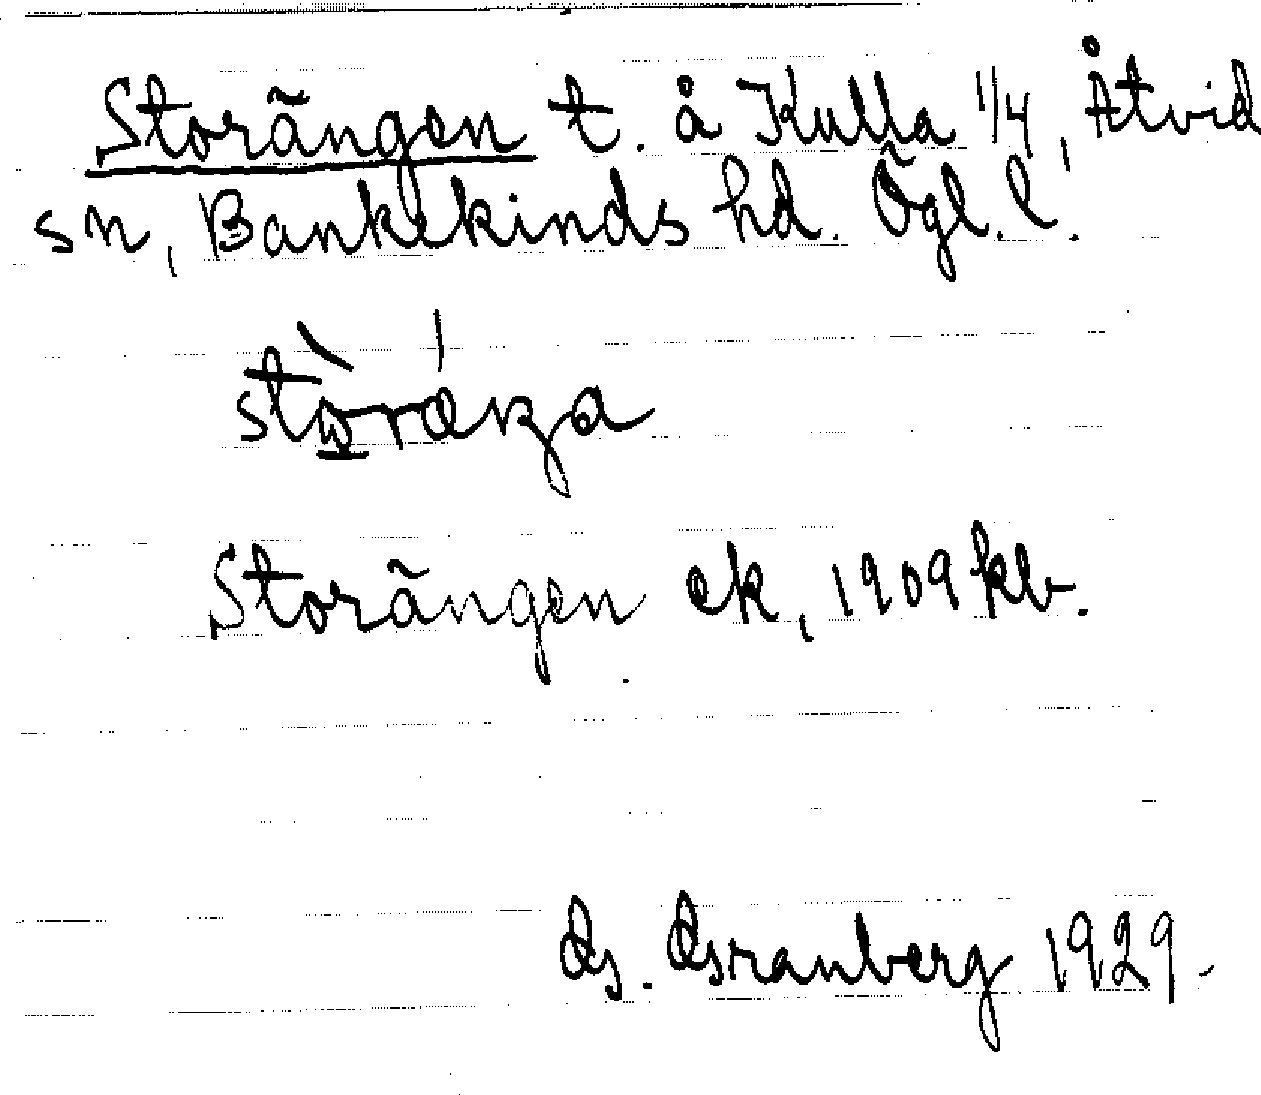 Storängen t. å Kulla 1/4, Åtvid
sn, Bankekinds hd. Ögl. l.
Storängen ek, 1909 kb.
G. Granberg 1929.